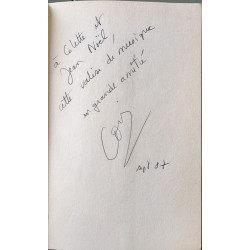 à Colette et
Jean Noël,
cette valise de musique
en grande amitié
sept 07